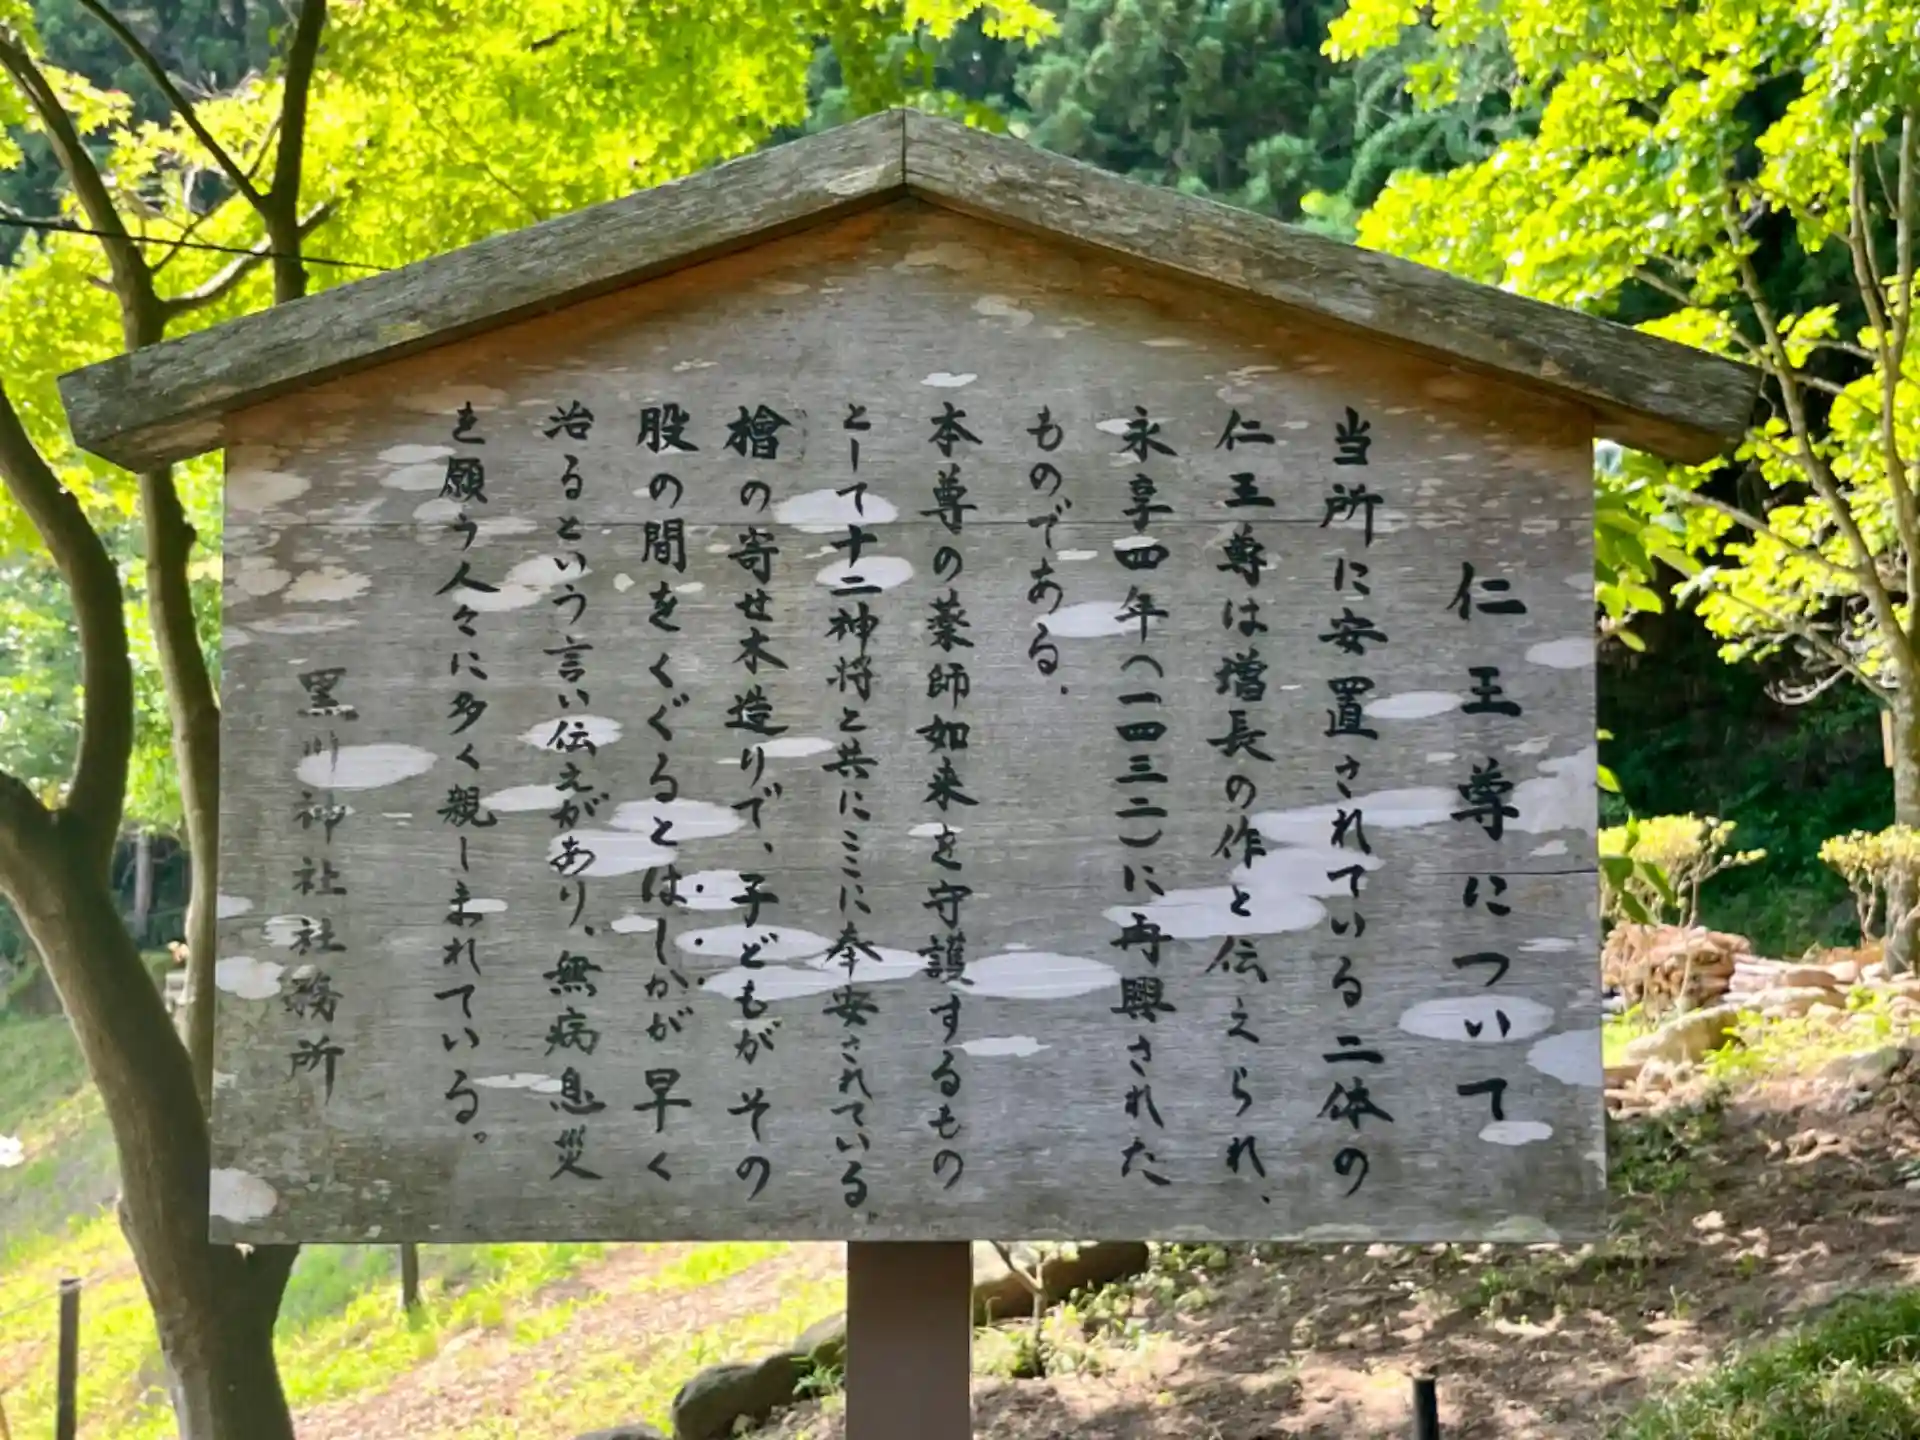 仁王尊について
当所に安置されている二体の
仁王尊は増長の作と伝えられ、
永享四年(一四三二)に再興された
ものである。
本尊の薬師如来を守護するもの
として十二神将と共にここに奉安されている。
檜の寄せ木造りで、子どもがその
股の間をくぐるとはしかが早く
治るという言い伝えがあり、無病息災
を願う人々に多く親しまれている。
黒川神社社務所